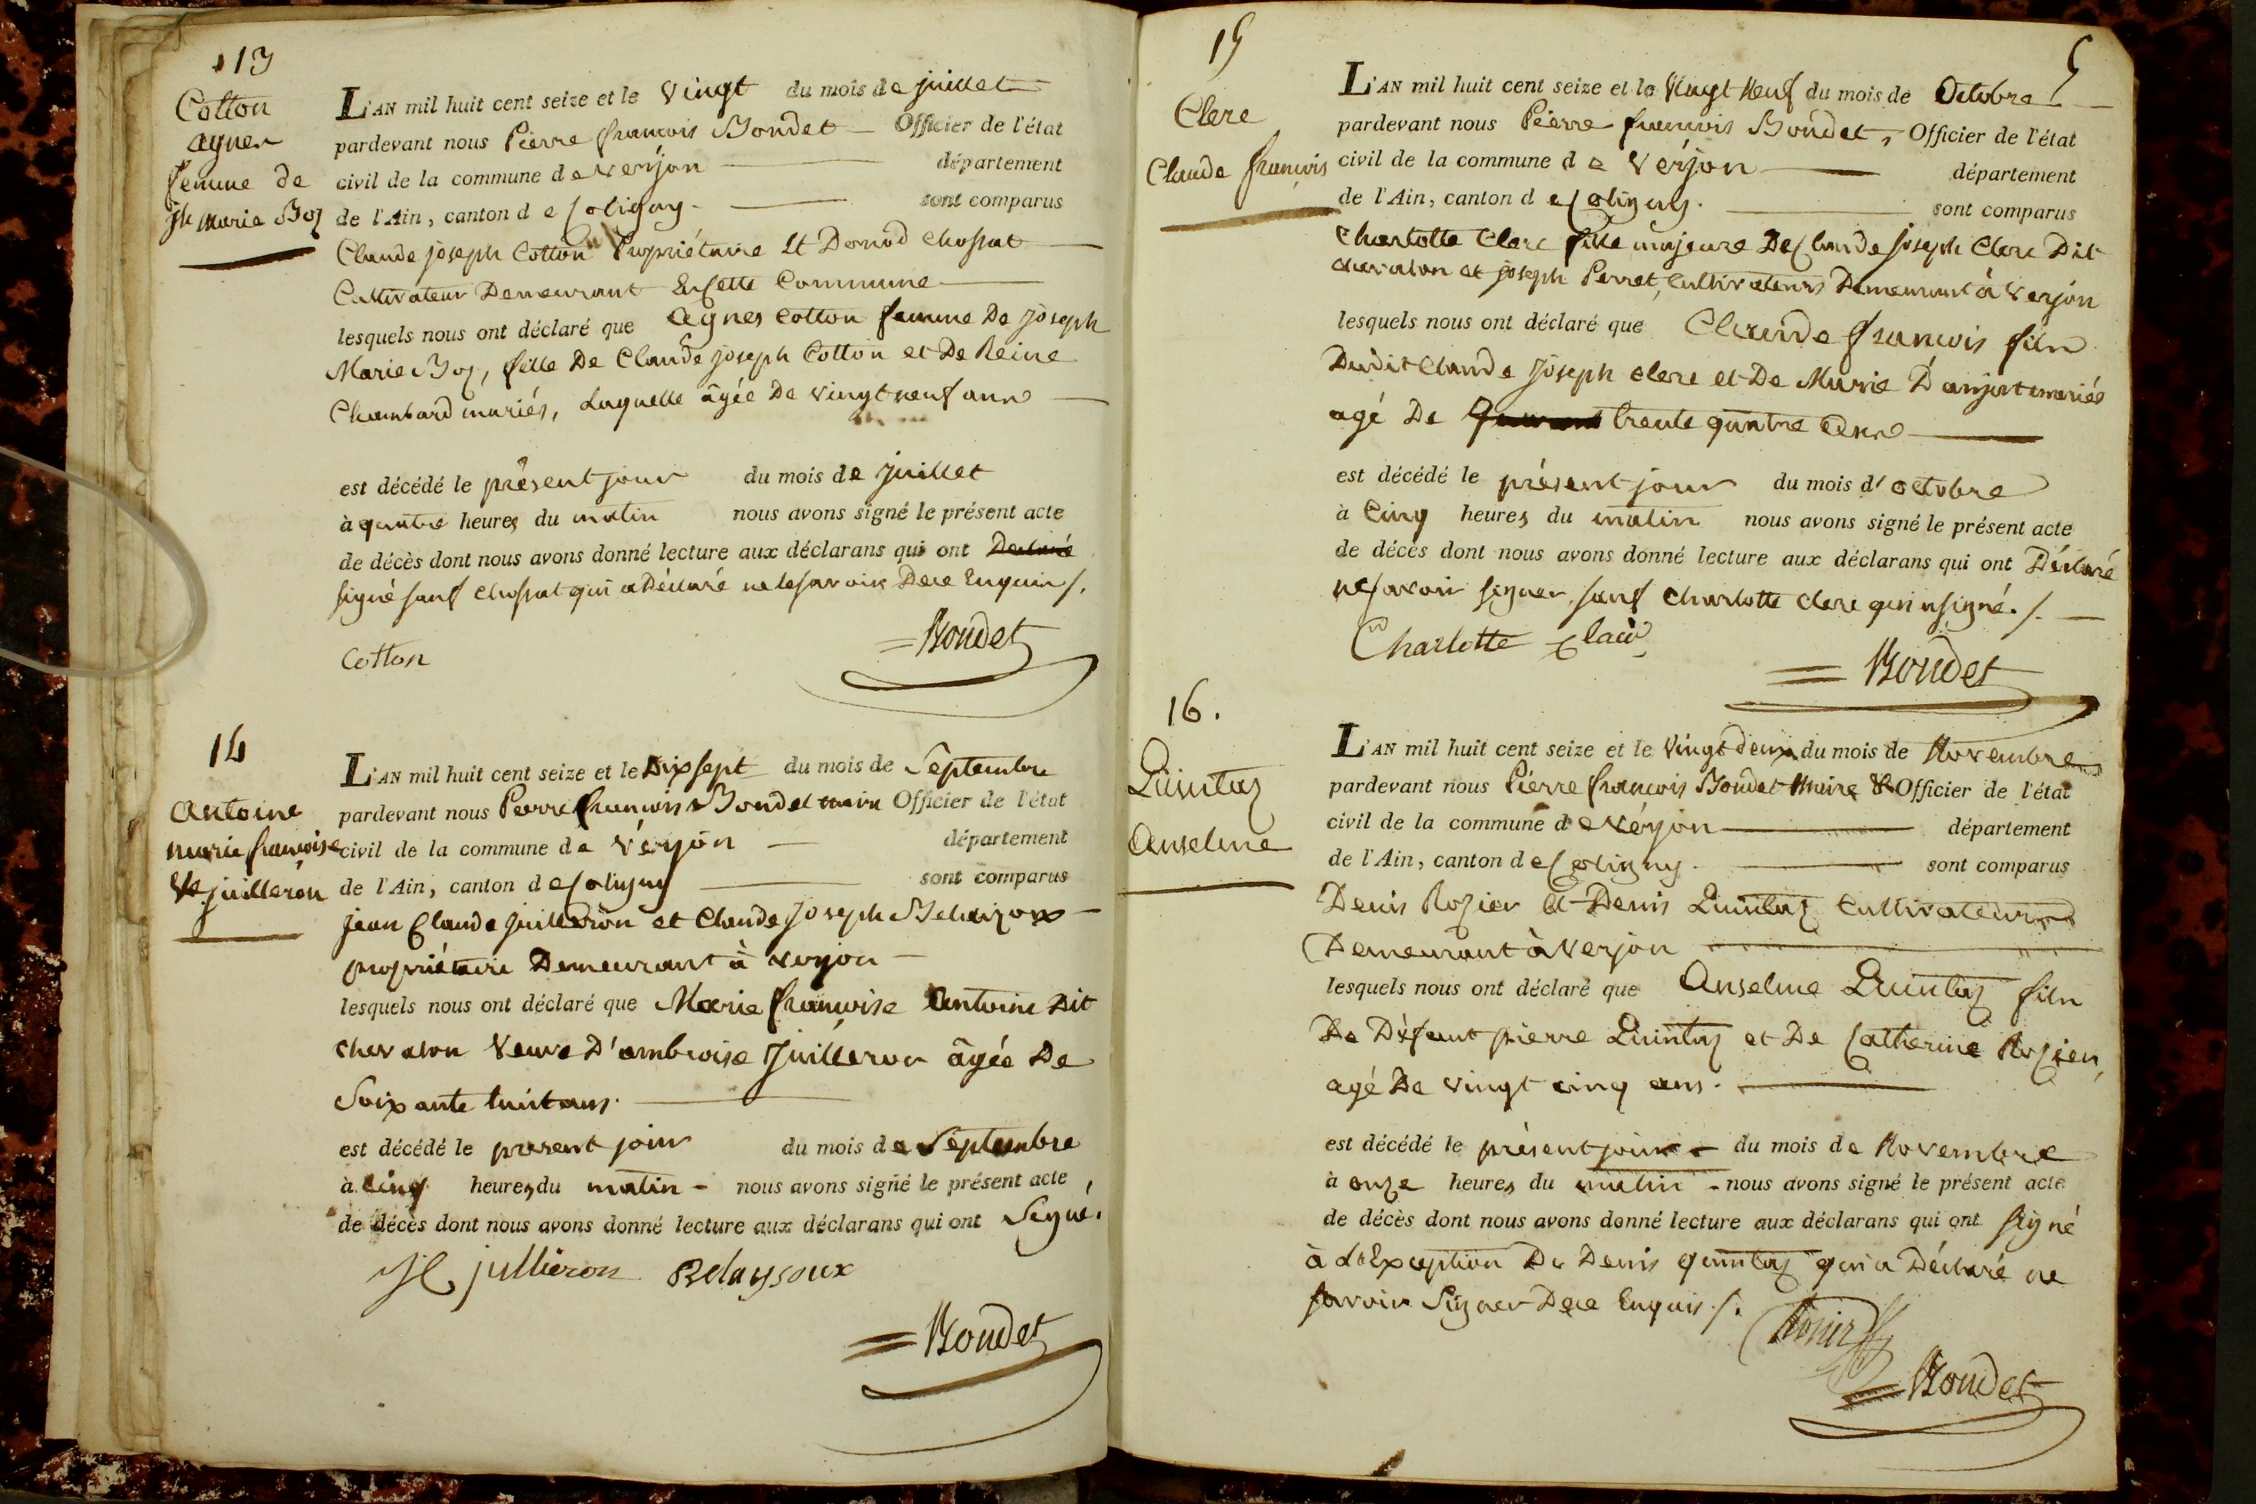 13
Cotton
agnes
femme de
jh marie Boz
L'AN mil huit cent seize et le Vingt du mois de juillet
pardevant nous Pierre françois Bondet Officier de l'état
civil de la commune de verjon département
de l'Ain, canton de Coligny. sont comparus
Claude joseph Cotton Propriétaire Et Donod Chossat
Cultivateur Demeurant En Cette Commune
lesquels nous ont déclaré que agnes Cotton femme De joseph
Marie Boz, fille De Claude joseph Cotton et De Reine
Chambard mariés, Laquelle âgée De vingt neuf ans
est décédé le présent jour du mois de juillet
à quatre heures du matin nous avons signé le présent acte
de décès dont nous avons donné lecture aux déclarans qui ont Declaré
signé sauf Chossat qui a Déclaré ne le savoir Dece Enquis /.
Cotton
Bondet
14
antoine
marie françoise
Ve juilleron
L'AN mil huit cent seize et le Dix sept du mois de Septembre
pardevant nous Pierre françois Bondet maire Officier de l'état
civil de la commune de Verjon département
de l'Ain, canton de Coligny sont comparus
jean Claude juilleron et Claude Joseph Belaizoux
propriétaire Demeurant à verjon
lesquels nous ont déclaré que Marie françoise Antoine Dit
chevalon Veuve D'ambroise Juilleron âgée De
Soixante huit ans.
est décédé le present jour du mois de Septembre
à Cinq heures du matin nous avons signé le présent acte
de décès dont nous avons donné lecture aux déclarans qui ont Signé.
JC jullieron Belaysoux
Bondet
15
Clerc
Claude françois
5
L'AN mil huit cent seize et le Vingt Neuf du mois de Octobre
pardevant nous Pierre françois Bondet, Officier de l'état
civil de la commune de Verjon département
de l'Ain, canton de Coligny. sont comparus
Charlotte Clerc fille majeure De Claude joseph Clerc Dit
chevalon et joseph Perret, Cultivateurs Demeurant à Verjon
lesquels nous ont déclaré que Claude françois fils
Dudit Claude Joseph Clerc et De Marie Danjat mariés
agé De trente quatre ans
est décédé le présent jour du mois d'octobre
à Cinq heures du matin nous avons signé le présent acte
de décès dont nous avons donné lecture aux déclarans qui ont Déclaré
ne savoir signer, sauf Charlotte Clerc qui a signé. /.
Charlotte Clair
Bondet
16.
Quintaz
Anselme
L'AN mil huit cent seize et le Vingt deux du mois de Novembre
pardevant nous Pierre françois Bondet Maire & Officier de l'état
civil de la commune de Vérjon département
de l'Ain, canton de Coligny. sont comparus
Denis Rozier Et Denis Quintaz Cultivateurs
Demeurant à Verjon
lesquels nous ont déclaré que Anselme Quintaz fils
De Défunt pierre Quintaz et De Catherine Rozier,
agé De vingt cinq ans.
est décédé le présent jour du mois de Novembre
à onze heures du matin nous avons signé le présent acte
de décès dont nous avons donné lecture aux déclarans qui ont signé
à L'Exception De Denis quintaz qui a Déclaré ne
savoir Signer Dece Enquis. /.
Bondet